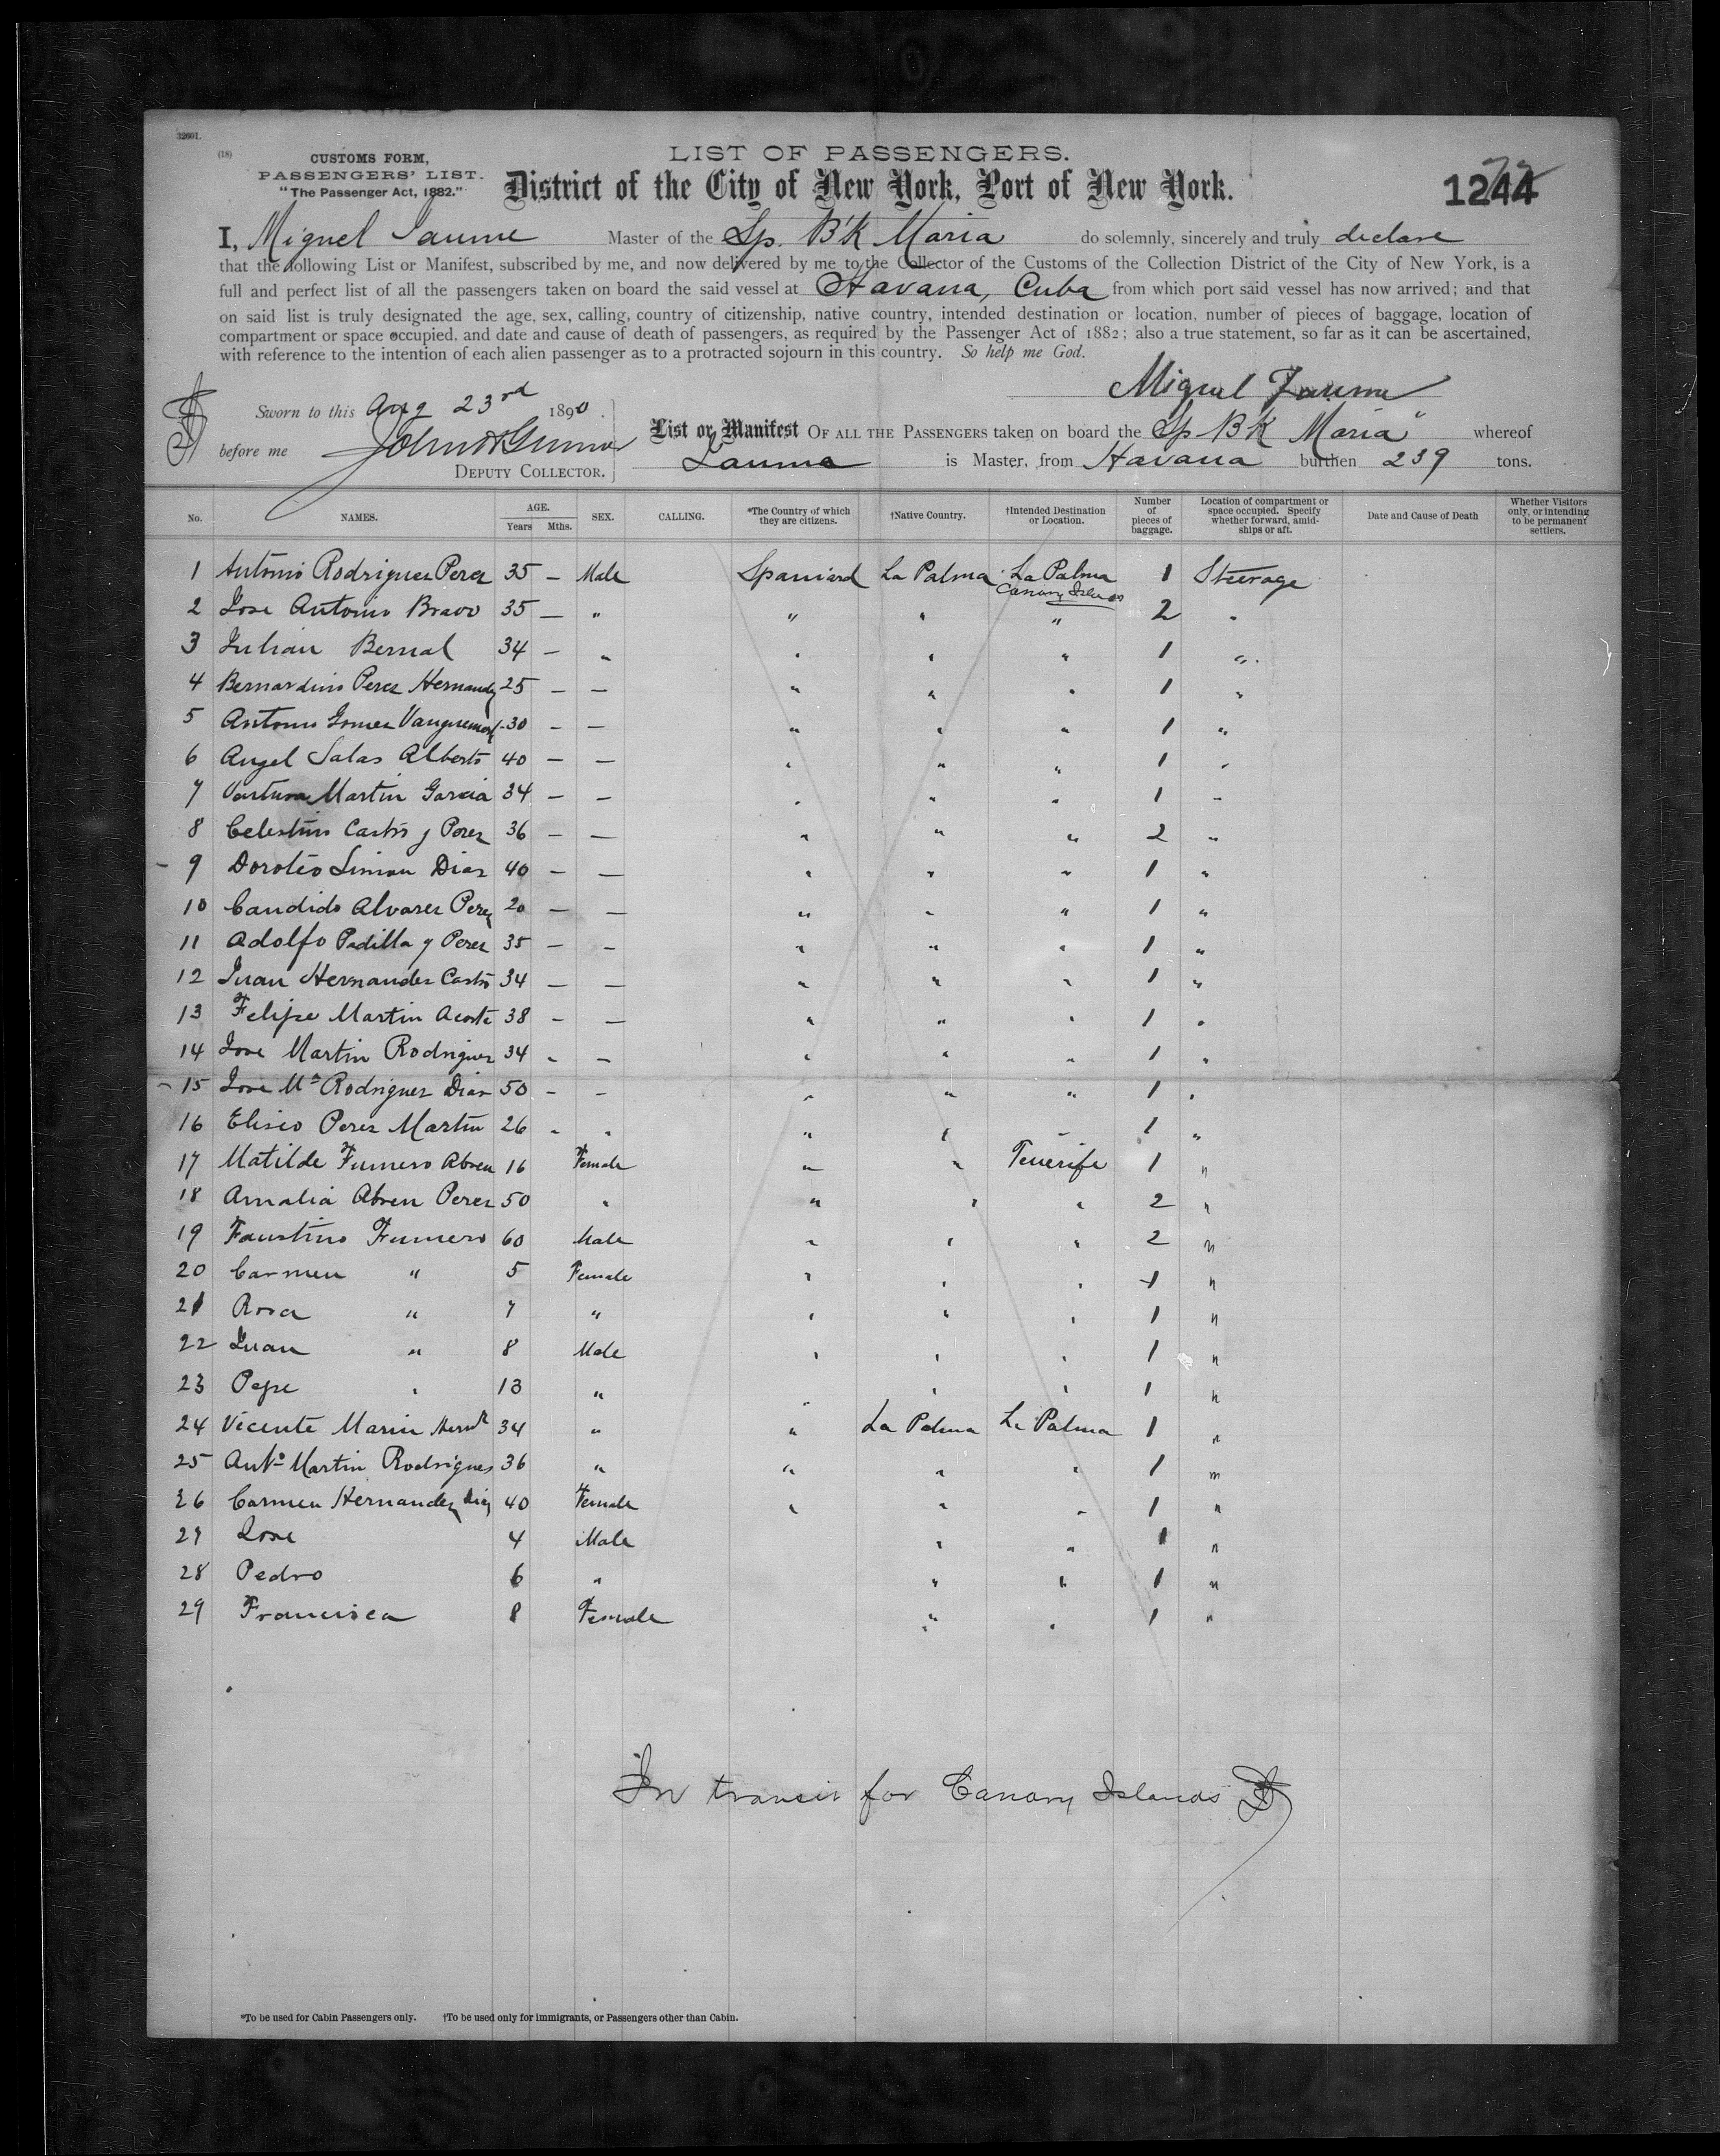 32601.
(18)
CUSTOMS FORM,
PASSENGERS' LIST.
"The Passenger Act, 1882."
LIST OF PASSENGERS.
District of the City of New York, Port of New York.
1244
I, Miguel Jaume Master of the Sp. B'k Maria do solemnly, sincerely and truly declare
that the following List or Manifest, subscribed by me, and now delivered by me to the Collector of the Customs of the Collection District of the City of New York, is a
full and perfect list of all the passengers taken on board the said vessel at Havana, Cuba from which port said vessel has now arrived; and that
on said list is truly designated the age, sex, calling, country of citizenship, native country, intended destination or location, number of pieces of baggage, location of
compartment or space occupied, and date and cause of death of passengers, as required by the Passenger Act of 1882; also a true statement, so far as it can be ascertained,
with reference to the intention of each alien passenger as to a protracted sojourn in this country. So help me God.
Miguel Jaume
Sworn to this Aug 23rd 1890.
before me
DEPUTY COLLECTOR.
List or Manifest OF ALL THE PASSENGERS taken on board the Sp B'k Maria whereof
Jaume is Master, from Havana burthen 239 tons.
No. NAMES. AGE. Years Mths. SEX. CALLING. *The Country of which they are citizens. †Native Country. †Intended Destination or Location. Number of pieces of baggage. Location of compartment or space occupied. Specify whether forward, amidships or aft. Date and Cause of Death Whether Visitors only, or intending to be permanent settlers.
1 Antonio Rodriguez Perez 35 — Male Spaniard La Palma La Palma Canary Islands 1 Steerage
2 Jose Antonio Bravo 35 — " " " " 2 "
3 Julian Bernal 34 — " " " " 1 "
4 Bernardino Perez Hernandez 25 — — " " " 1 "
5 Antonio Gomez 30 — — " " " 1 "
6 Angel Salas Alberto 40 — — " " " 1 "
7 Ventura Martin Garcia 34 — — " " " 1 "
8 Celestino Castro y Perez 36 — — " " " 2 "
9 Doroteo Simon Diaz 40 — — " " " 1 "
10 Candido Alvarez Perez 20 — — " " " 1 "
11 Adolfo Padilla y Perez 35 — — " " " 1 "
12 Juan Hernandez Castro 34 — — " " " 1 "
13 Felipe Martin Acosta 38 — — " " " 1 "
14 Jose Martin Rodriguez 34 — — " " " 1 "
15 Jose Ma Rodriguez Diaz 50 — — " " " 1 "
16 Eliseo Perez Martin 26 " " " " " 1 "
17 Matilde Fumero Abreu 16 Female " " Tenerife 1 "
18 Amalia Abreu Perez 50 " " " " 2 "
19 Faustino Fumero 60 Male " " " 2 "
20 Carmen " 5 Female " " " 1 "
21 Rosa " 7 " " " " 1 "
22 Juan " 8 Male " " " 1 "
23 Pepe " 13 " " " " 1 "
24 Vicente Marin Hern 34 " " La Palma La Palma 1 "
25 Anto Martin Rodriguez 36 " " " " 1 "
26 Carmen Hernandez 40 Female " " " 1 "
27 Jose 4 Male " " 1 "
28 Pedro 6 " " " 1 "
29 Francisca 8 Female " " 1 "
In transit for Canary Islands
*To be used for Cabin Passengers only. †To be used only for immigrants, or Passengers other than Cabin.